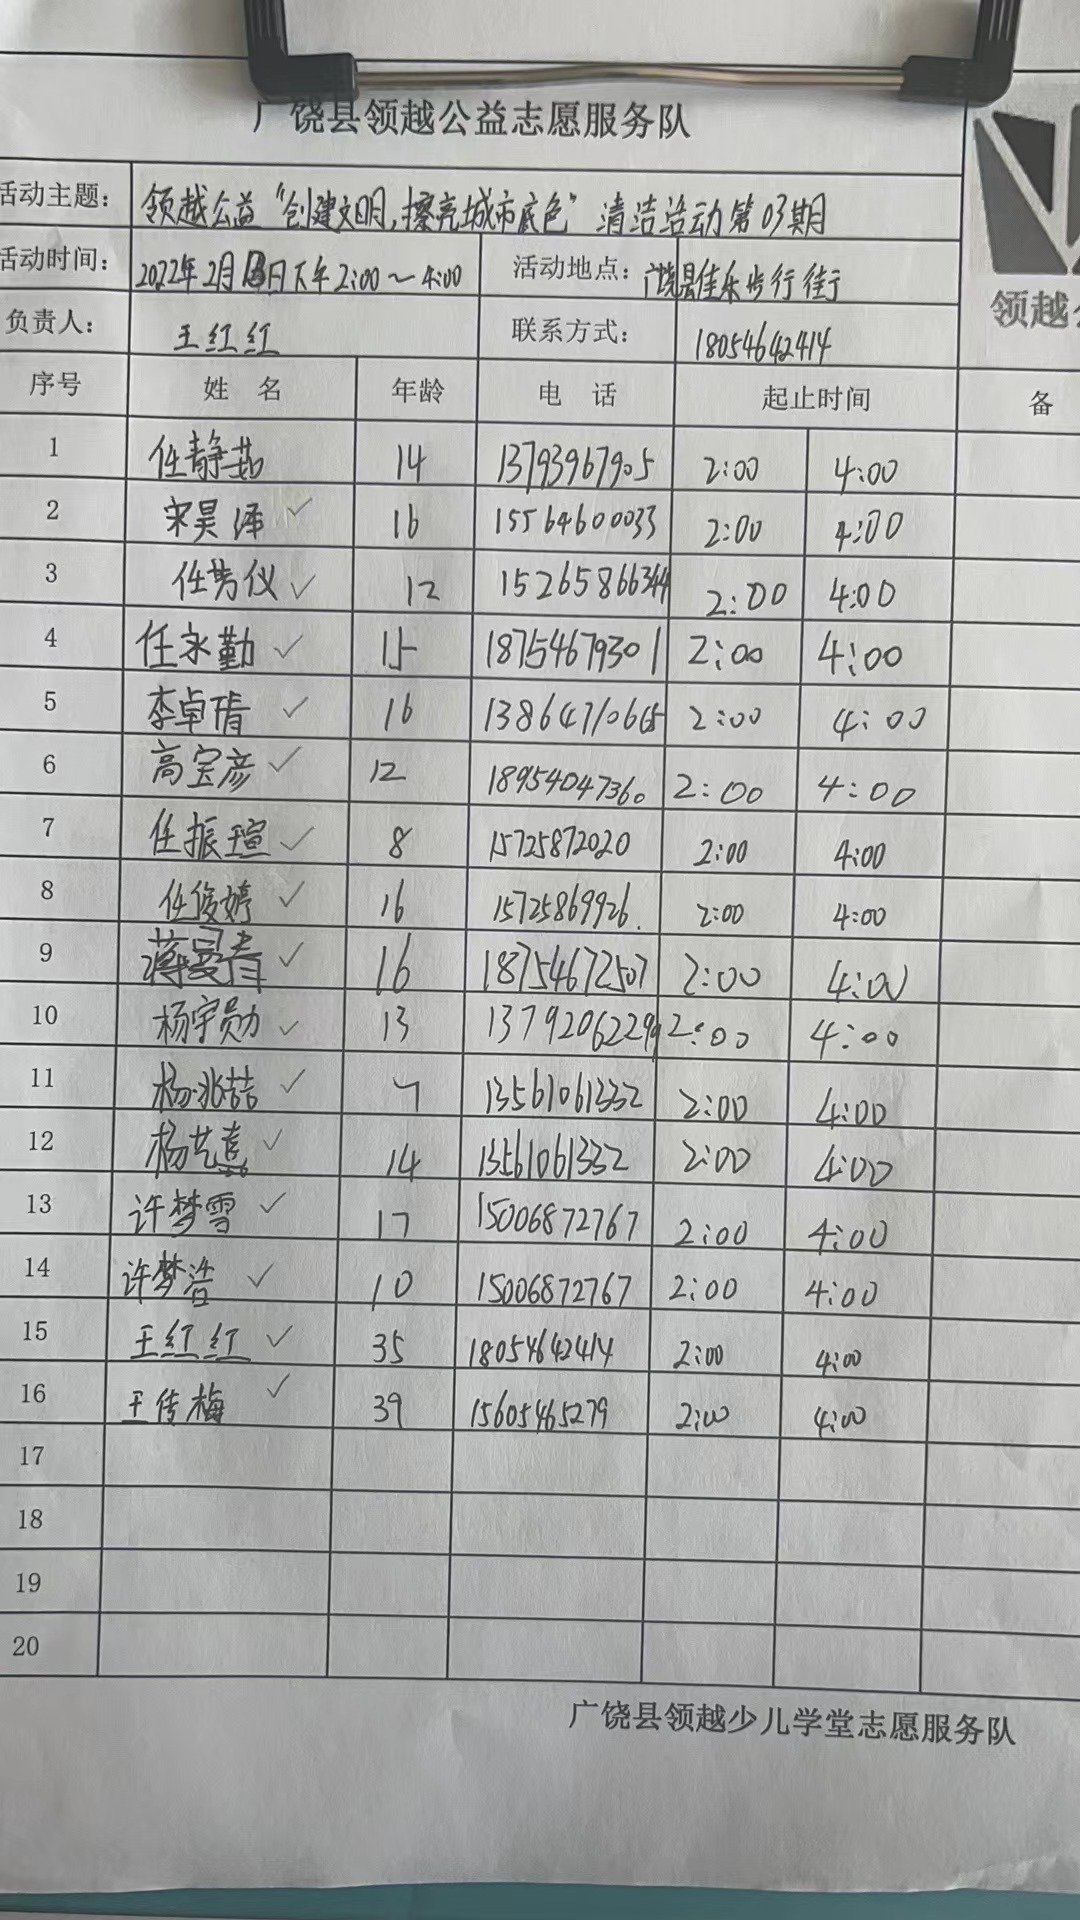 广饶县领越公益志愿服务队
活动主题： 领越公益"创建文明，擦亮城市底色"清洁活动第03期
活动时间： 2022年2月13日下午2:00～4:00 活动地点： 广饶县佳乐步行街
领越公
负责人： 王红红 联系方式： 18054642414
序号 姓 名 年龄 电 话 起止时间 备
1 任静茹 14 13793967905 2:00 4:00
2 宋昊泽 ✓ 16 15564600033 2:00 4:00
3 任芳仪 ✓ 12 15265866344 2:00 4:00
4 任永勤 ✓ 15 18754679301 2:00 4:00
5 李卓倩 ✓ 16 13864710665 2:00 4:00
6 高宝彦 ✓ 12 18954047360 2:00 4:00
7 任振瑄 ✓ 8 15725872020 2:00 4:00
8 任俊婷 ✓ 16 15725869926. 2:00 4:00
9 蒋曼青 ✓ 16 18754672507 2:00 4:00
10 杨宇勋 ✓ 13 13792062299 2:00 4:00
11 杨兆喆 ✓ 7 13561061332 2:00 4:00
12 杨艺熹 ✓ 14 13561061332 2:00 4:00
13 许梦雪 ✓ 17 15006872767 2:00 4:00
14 许梦浩 ✓ 10 15006872767 2:00 4:00
15 王红红 ✓ 35 18054642414 2:00 4:00
16 王传梅 ✓ 39 15605465279 2:00 4:00
17
18
19
20
广饶县领越少儿学堂志愿服务队